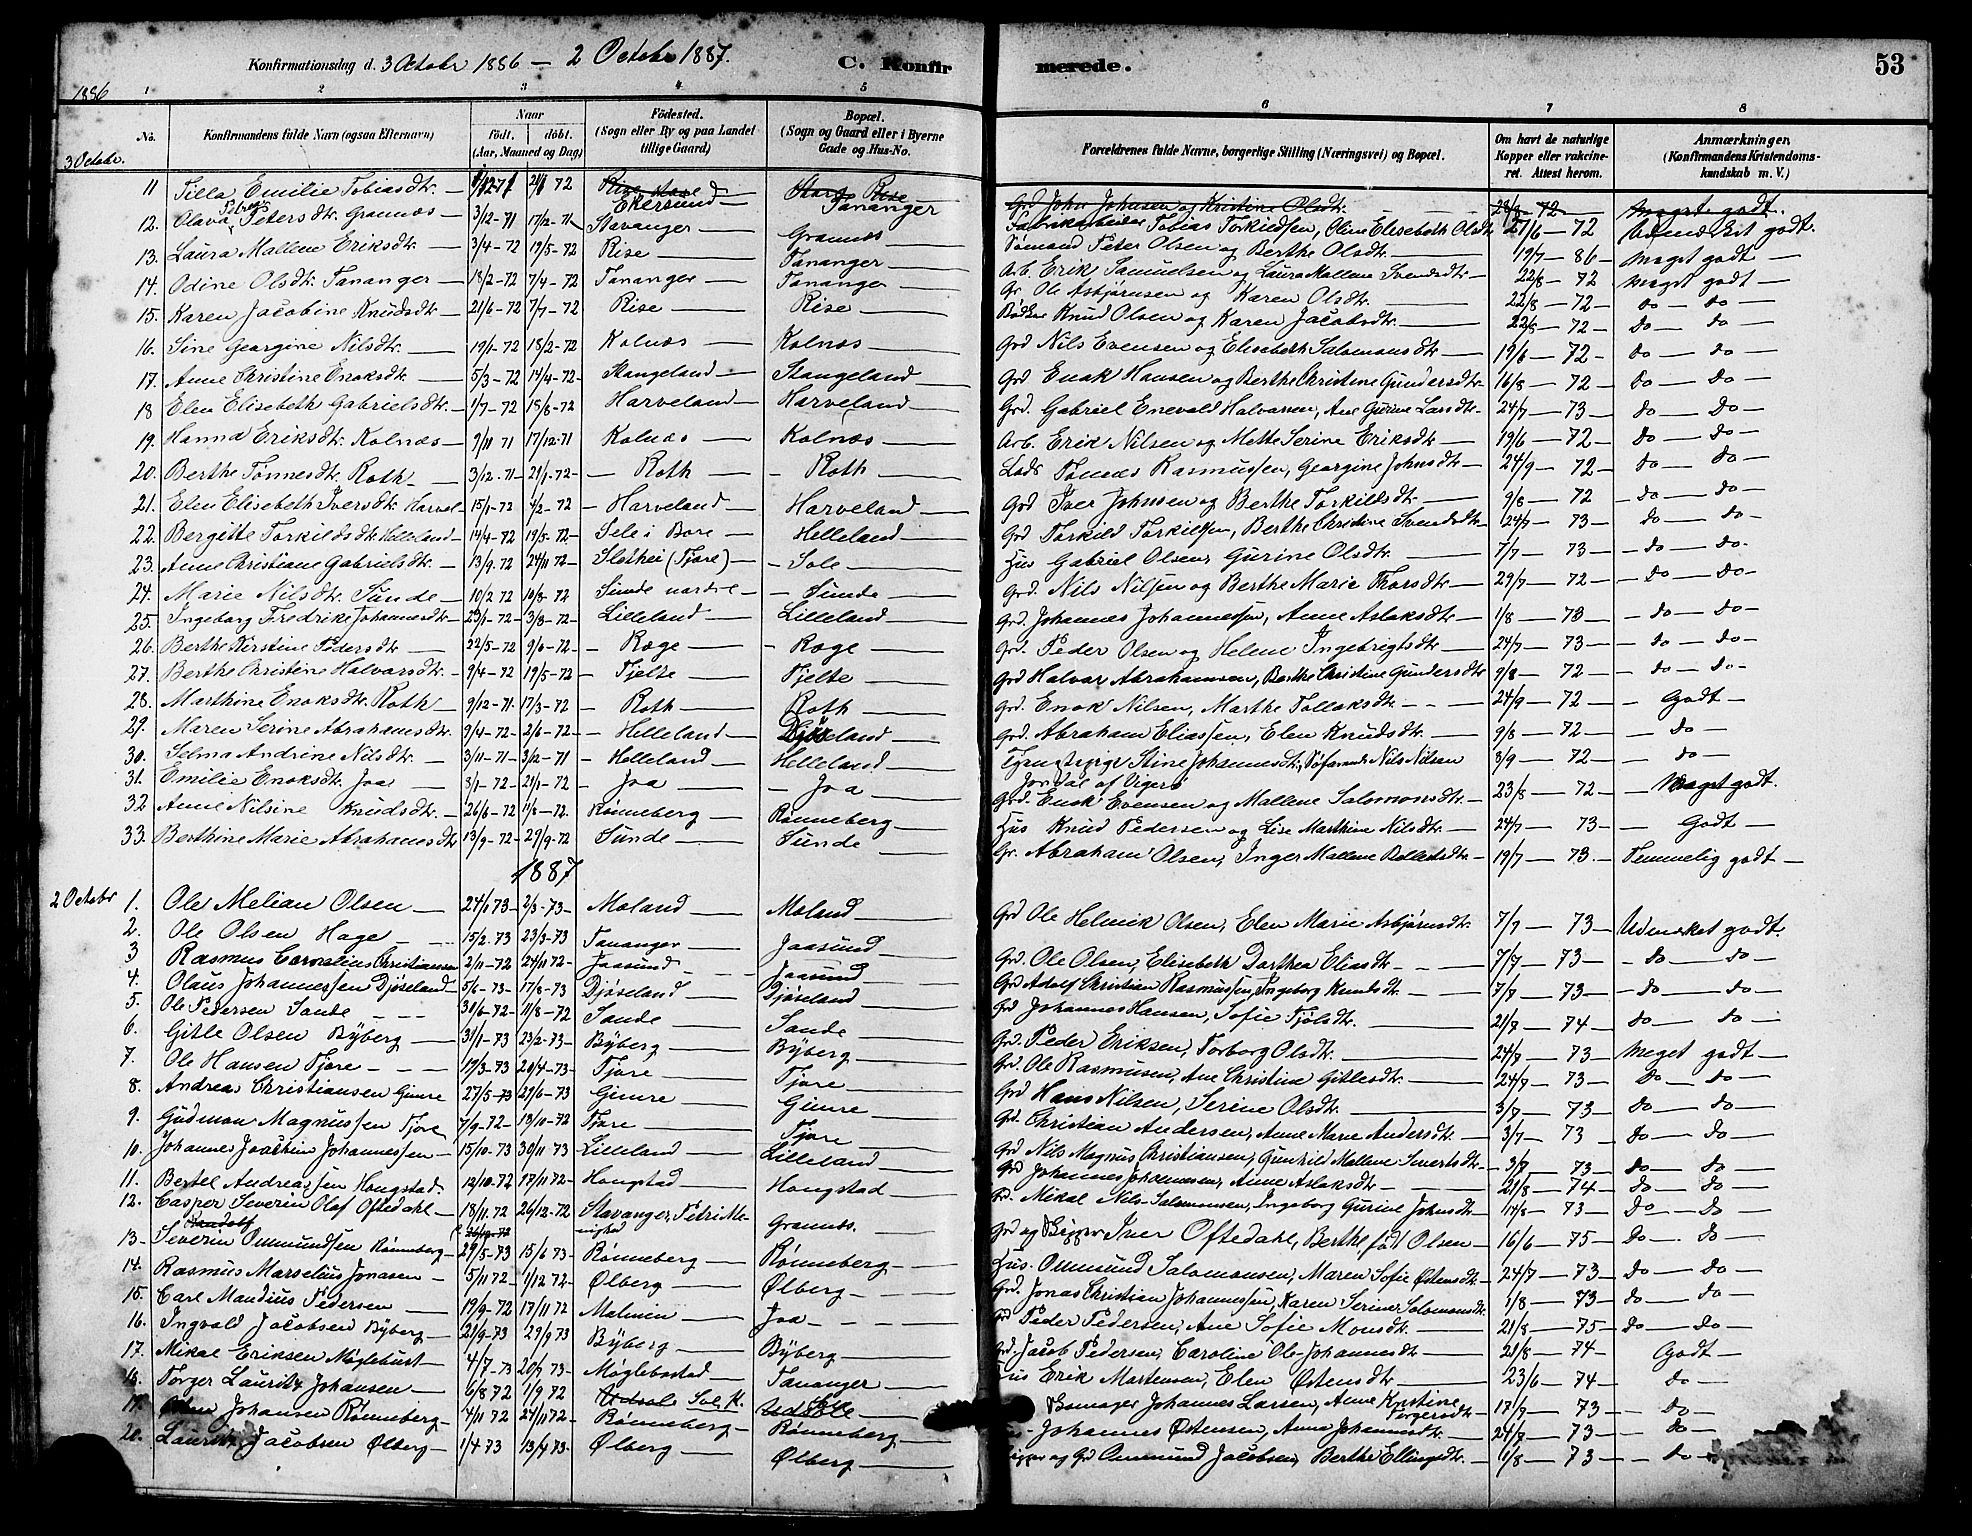 Konfirmationsdag d. 3 Octobr 1886 — 2 Octobr 1887. C. Konfirmerede. 53
1886
1 2 3 4 5 6 7 8
No. Konfirmandens fulde Navn (ogsaa Efternavn) Naar födt. döbt. (Aar, Maaned og Dag) Födested. (Sogn eller By og paa Landet tillige Gaard) Bopæl. (Sogn og Gaard eller i Byerne Gade og Hus-No. Forældrenes fulde Navne, borgerlige Stilling (Næringsvei) og Bopæl. Om havt de naturlige Kopper eller vakcineret. Attest herom. Anmærkninger. (Konfirmandens Kristendomskundskab m. V.)
3 Octobr.
Grd John Johnsen og Kristine Olsdtr. 72 Meget godt.
11 Silla Emilie Tobiasdtr. 21/1 72 Ekersund Tananger Fabrikarbeider Tobias Torkildsen, Oline Elisabeth Olsdtr 27/6 — 72 godt.
12. Olava Petrea Petersdtr. Grannæs 3/12-71 17/2-71 Stavanger Grannæs Sömand Peter Olsen og Berthe Olsdtr. 19/7 — 86 Meget godt
13. Laura Mallene Eriksdtr. 3/4-72 19/5-72 Rise Tananger Arb. Erik Samuelsen og Laura Mallene Svendsdtr 22/8 — 72 Meget godt
14. Odine Olsdtr. Tananger 18/2-72 7/4-72 Tananger Tananger Gr Ole Asbjørnsen og Karen Olsdtr. 22/8 — 72 do do
15. Karen Jacobine Knudsdtr 21/6-72 7/7-72 Rise Rise Bödker Knud Olsen og Karen Jacobsdtr. 22/8 — 72 do do
16. Sine Georgine Nilsdtr. 19/1-72 18/2-72 Kolnæs Kolnæs Grd Nils Evensen og Elisebeth Salomonsdtr 19/6 — 72 do do
17. Anne Christine Enoksdtr. 5/3-72 14/4-72 Stangeland Stangeland Grd Enok Hansen og Berthe Christine Gundersdtr. 16/8 — 72 do do
18 Elen Elisebeth Gabrielsdtr. 1/7-72 18/8-72 Harveland Harveland Grd. Gabriel Enevald Halvorsen, Ane Gurine Larsdtr. 24/7 — 73 do do
19. Hanna Eriksdtr. Kolnæs 9/11 71 17/12-71 Kolnæs Kolnæs Arb. Erik Nilsen og Mette Serine Eriksdtr 19/6 — 72 do do
20. Berthe Tønnesdtr. Roth 3/12-71 21/1-72 Roth Roth Lods Tønnes Rasmussen, Georgine Johnsdtr 24/9 — 72 do do
21. Elen Elisebeth Iversdtr. Harvel 15/1-72 4/2-72 Harveland Harveland Grd Iver Johnsen og Berthe Torkildsdtr. 9/8 — 72 do do
22. Bergitte Torkildsdtr. Helleland 14/4-72 19/5-72 Sele i Bore Helleland Grd Torkild Torkildsen, Berthe Christine Svendsdtr 24/7 — 73 do do
23. Anne Christiane Gabrielsdtr. 13/9 72 24/11 72 Slothei (Tjore) Sole Hus Gabriel Olsen, Gurine Olsdtr. 7/7 — 73 do do
24. Marie Nilsdtr. Sunde 10/2 72 10/3-72 Sunde nordre Sunde Grd. Nils Nilsen og Berthe Marie Thorsdtr 29/7 — 72 do do
25. Ingeborg Fredrike Johannesdtr 23/1-72 3/3-72 Lilleland Lilleland Grd. Johannes Johannessen, Anne Aslaksdtr 1/8 — 73 do do
26. Berthe Kerstine Pedersdtr 22/5-72 9/6-72 Ræge Ræge Grd. Peder Olsen og Helene Ingebrigtsdtr 24/7 — 73 do do
27. Berthe Christine Halvorsdtr. 9/4-72 19/5-72 Tjelte Tjelte Grd Halvor Abrahamsen, Berthe Christine Gundersdtr 9/8 — 72 do do
28. Marthine Enoksdtr. Roth 9/12-71 17/3-72 Roth Roth Grd. Enok Nilsen, Marthe Tollaksdtr. 24/9 — 72 Godt
29. Maren Serine Abrahamsdtr. 9/4-72 2/6-72 Helleland Djøseland Grd. Abraham Eliassen, Elen Knudsdtr. 9/8 — 72 do
30. Selma Andrine Nilsdtr. 3/11-71 3/12-71 Helleland Helleland Stine Johannesdtr., Søfarende Nils Nilsen Jordal af Vigers 3/9 — 72 do
31. Emilie Enoksdtr. Joa 3/1-72 21/1-72 Joa Joa Grd. Enok Evensen og Mallene Salomonsdtr. 23/8 — 72 Meget godt.
32 Anne Nilsine Knudsdtr. 26/6-72 1/8-72 Rønneberg Rønneberg Hus Knud Pedersen og Lise Marthine Nilsdtr. 24/7 — 73 Godt
33. Berthine Marie Abrahamsdtr 13/9-72 29/9-72 Sunde Sunde Gr. Abraham Olsen, Inger Mallene 19/7 — 73 Temmelig godt
1887
2 Octobr 1. Ole Melian Olsen 24/1 73 2/3-73 Moland Moland Grd Ole Helmik Olsen, Elen Marie Asbjørnsdtr 7/7 — 73 Udmerket godt.
2. Ole Olsen Hage 15/2 73 23/3-73 Tananger Jaasund Grd. Ole Olsen, Elisebeth Dorthea Eliasdtr 7/7 — 73 do do
3 Rasmus Cornelius Christiansen 2/11-72 24/11 72 Jaasund Jaasund Grd Adolf Christian Rasmussen, Ingeborg Knudsdtr. 7/7 — 73 do do
4. Olaus Johannessen Djøseland 5/6-73 17/8-73 Djøseland Djøseland Grd Johannes Hansen, Sofie Tjølsdtr. 21/7 — 74 do do
5. Ole Pedersen Sande 30/6-72 11/8-72 Sande Sande Grd. Peder Eriksen, Torborg Olsdtr. 24/7 — 73 Meget godt
6. Gitle Olsen Byberg 31/1-73 23/2-73 Byberg Byberg Grd. Ole Rasmussen, Ane Christina Gitlesdtr. 24/7 — 73 do do
7. Ole Hansen Tjore 19/3-73 20/4-73 Tjore Tjore Grd Hans Nilsen, Serine Olsdtr. 3/7 — 73 do do
8. Andreas Christiansen Gimre 27/5-73 29/6-73 Gimre Gimre Grd. Christian Andersen, Anne Marie Andersdtr. 3/7 — 73 do do
9. Gudman Magnussen Tjore 7/9-72 13/10-72 Tjore Tjore Grd Nils Magnus Christiansen, Gunhild Mallene Sivertsdtr 3/7 — 73 do do
10. Johannes Joachim Johannessen 15/10-73 30/11 73 Lilleland Lilleland Grd Johannes Johannessen, Anne Aslaksdtr 21/8 — 74 do do
11. Bertel Andreassen Hongstad. 12/10-72 17/11 72 Hongstad Hongstad Grd. Mikal Nils Salomonsen, Ingeborg Gurine Johnsdtr 14/8 — 73 do do
12. Casper Severin Olaf Oftedahl 18/11 72 26/12-72 Stavanger, Petri Menighed Grannæs. Grd og Skipper Iver Oftedahl, Berthe født Olsen 16/6 — 75 do do
13. Severin Ommundsen Rønneberg 29/5-73 15/6 73 Rønneberg Rønneberg Hus. Ommund Salomonsen, Maren Sofie Østensdtr 24/7 — 73 do do
14. Rasmus Marselius Jonasen 5/11 72 1/12 72 Ølberg Ølberg Grd. Jonas Christian Johannessen, Karen Serine Salomonsdtr 1/8 — 73 do do
15. Carl Mandius Pedersen 19/9-72 17/11 72 Malmin Joa Grd Peder Pedersen, Ane Sofie Monsdtr. 21/8 — 75 do do
16. Ingvald Jacobsen Byberg 21/9-73 29/9 73 Byberg Byberg Grd. Jacob Pedersen, Caroline Ole Johannesdtr 21/8 — 74 Godt
17. Mikal Eriksen Møglebust 4/7-73 20/7 73 Møglebostad Tananger Hus Erik Martensen, Elen Østensdtr 23/6 — 74 do
18. Torger Lauritz Johansen 6/8 72 1/9 72 Udsole Sole K. Udsole Johannes Larsen, Anne Kristine Torgersdtr 17/9 — 73 do
19. Johansen Rønneberg 4/11 72 24/11 72 Rønneberg Rønneberg Johannes Østensen, Anna Johannesdtr 24/7 — 73 do
20. Lauritz Jacobsen Ølberg 1/4 73 13/4 73 Ølberg Ølberg og Grd Ommund Jacobsen, Berthe Ellingsdtr. 1/8 — 73 do